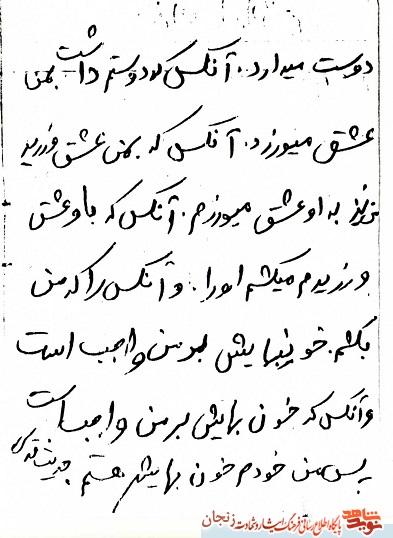 دوست میدارد. آنکس که دوستم داشت بمن
عشق میورزد. آنکس که بمن عشق ورزید
من نیز به او عشق میورزم. آنکس که باو عشق
ورزیدم میکشم اورا. و آنکس را که من
بکشم. خونبهایش بر من واجب است
و آنکس که خون بهایش بر من واجب است
پس من خودم خون بهایش هستم
نوید شاهد
پایگاه اطلاع رسانی فرهنگ ایثار و شهادت زنجان